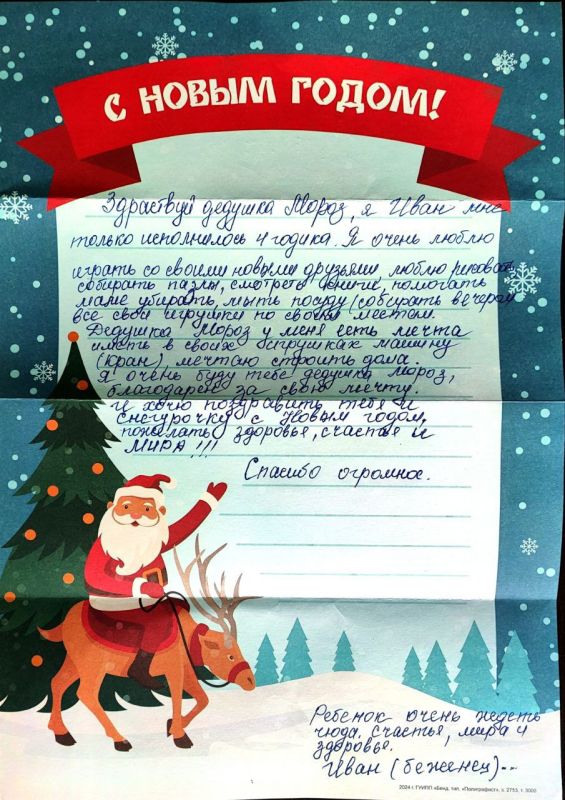 С НОВЫМ ГОДОМ!
Здраствуй дедушка Мороз, я Иван мне
только исполнилось 4 годика. Я очень люблю
играть со своими новыми друзьями, люблю рисовать
собирать пазлы, смотреть книги, помогать
маме убирать, мыть посуду, собирать вечером
все свои игрушки по своим местам.
Дедушка Мороз у меня есть мечта
иметь в своих игрушках машину
(кран) мечтаю строить дома.
Я очень буду тебе дедушка Мороз,
благодарен за свою мечту.
И хочу поздравить тебя и
Снегурочку с Новым годом,
пожелать здоровья, счастья и
МИРА!!!
Спасибо огромное.
Ребенок очень ждеть
чюда. Счастье, мира и
здоровье.
Иван (беженец)...
2024 г. ГУИПП «Бенд. тип. «Полиграфист», з. 2753, т. 3000